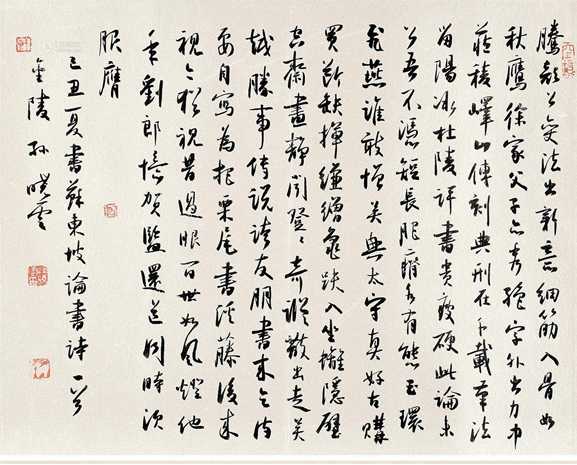 騰顏公變法出新意細筋入骨如
秋鷹徐家父子亦秀絕字外出力中
藏稜嶧山傳刻典刑在千載筆法
留陽冰杜陵評書貴瘦硬此論未
公吾不憑短長肥瘠各有態玉環
飛燕誰敢憎吳興太守真好古購
買斷缺揮縑繒龜趺入坐螭隱壁
空齋晝靜聞登登奇蹤散出走吳
越勝事傳說誇友朋書來乞詩
要自寫為把栗尾書溪藤後來
視今猶視昔過眼百世如風燈他
年劉郎憶賀監還道同時須
服膺
己丑夏書蘇東坡論書詩一首
金陵孫曉雲